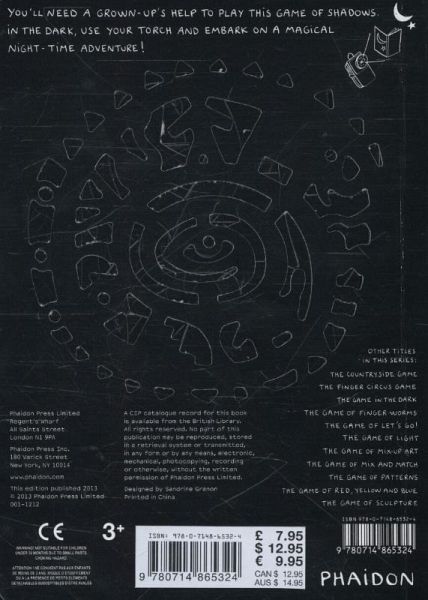 YOU'LL NEED A GROWN-UP'S HELP TO PLAY THIS GAME OF SHADOWS.
IN THE DARK, USE YOUR TORCH AND EMBARK ON A MAGICAL
NIGHT-TIME ADVENTURE!
OTHER TITLES
IN THIS SERIES:
THE COUNTRYSIDE GAME
THE FINGER CIRCUS GAME
THE GAME IN THE DARK
THE GAME OF FINGER WORMS
THE GAME OF LET'S GO!
THE GAME OF LIGHT
THE GAME OF MIX-UP ART
THE GAME OF MIX AND MATCH
THE GAME OF PATTERNS
THE GAME OF RED, YELLOW AND BLUE
THE GAME OF SCULPTURE
Phaidon Press Limited
Regent's Wharf
All Saints Street
London N1 9PA
Phaidon Press Inc.
180 Varick Street
New York, NY 10014
www.phaidon.com
This edition published 2013
© 2013 Phaidon Press Limited
001-1212
A CIP catalogue record for this book
is available from the British Library.
All rights reserved. No part of this
publication may be reproduced, stored
in a retrieval system or transmitted,
in any form or by any means, electronic,
mechanical, photocopying, recording
or otherwise, without the written
permission of Phaidon Press Limited.
Designed by Sandrine Granon
Printed in China
CE 3+
WARNING! NOT SUITABLE FOR CHILDREN
UNDER 36 MONTHS DUE TO SMALL PARTS.
CHOKING HAZARD!
ATTENTION! NE CONVIENT PAS AUX ENFANTS
DE MOINS DE 3 ANS. RISQUE D'ÉTOUFFEMENT
DÛ À LA PRÉSENCE DE PETITS ÉLÉMENTS
ISBN: 978-0-7148-6532-4
9 780714 865324
£ 7.95
$ 12.95
€ 9.95
CAN $ 12.95
AUS $ 14.95
ISBN 978-0-7148-6532-4
9 780714 865324
PHAIDON